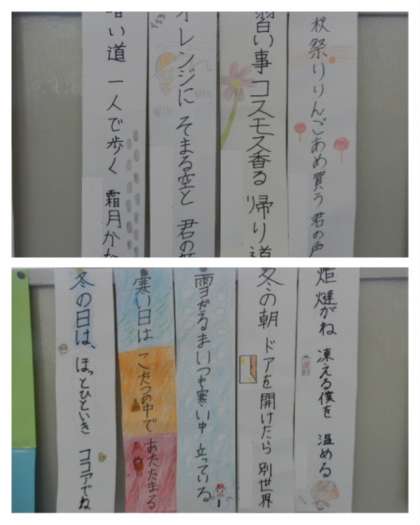 秋祭りりんごあめ買う 君の声
習い事 コスモス香る 帰り道
オレンジに そまる空と 君の
暗い道 一人で歩く 霜月か
炬燵がね 凍える僕を 温める
冬の朝 ドアを開けたら 別世界
雪だるま いつも寒い中 立っている
寒い日は こたつの中で あたたまる
冬の日は、ほっとひといき ココアでね